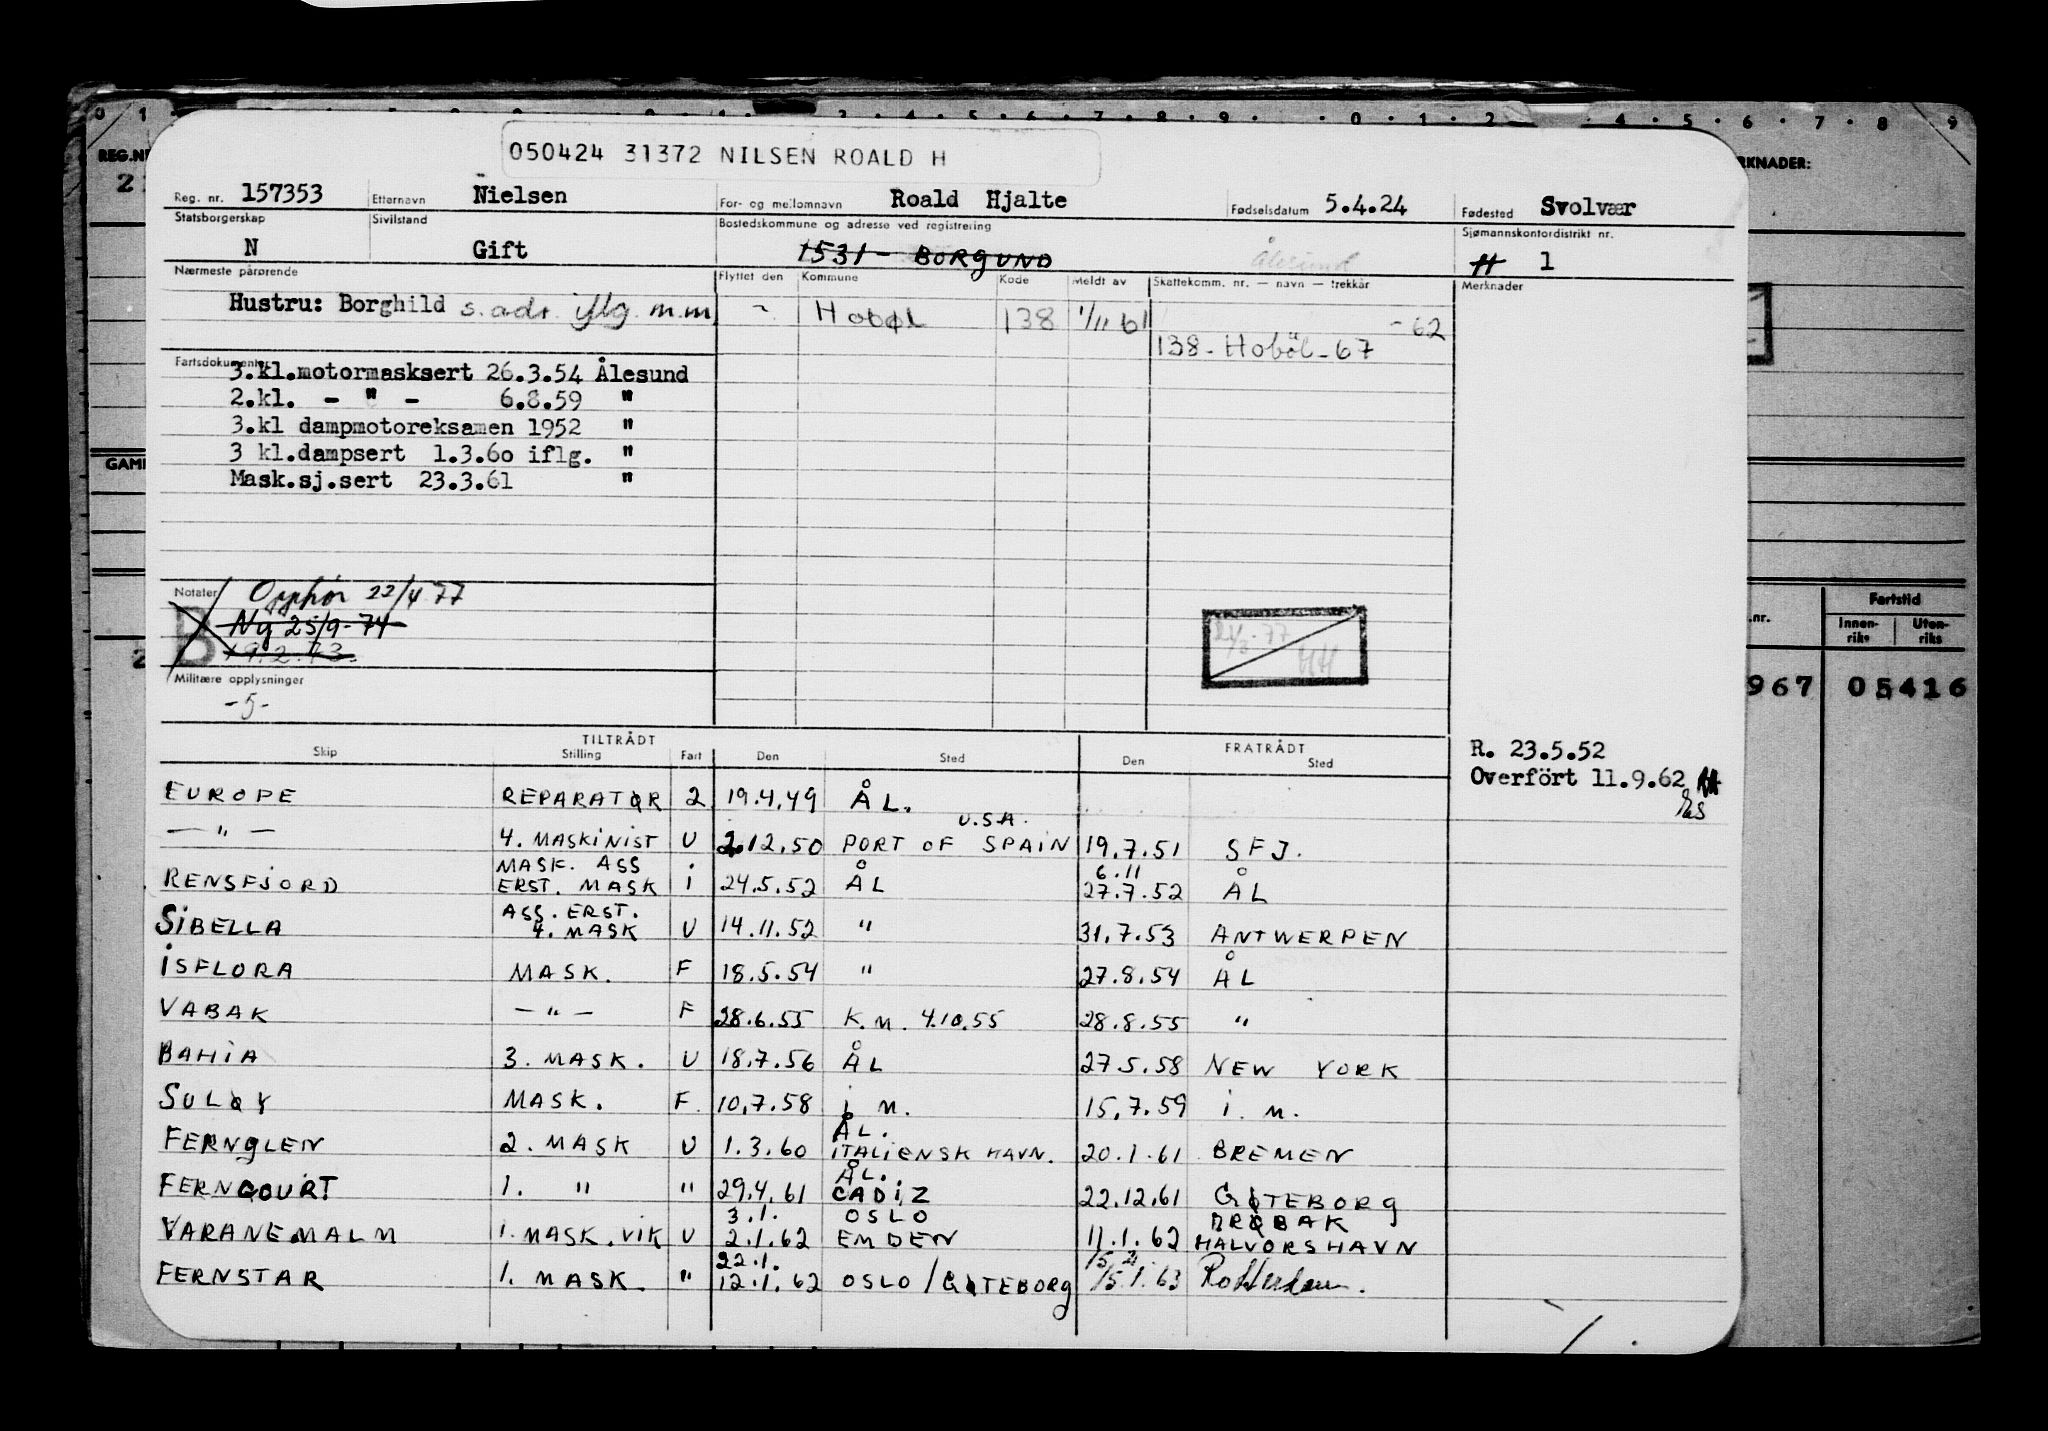 050424 31372 NILSEN ROALD H
REG.NR
RKNADER:
Reg. nr. 157353 Etternavn Nielsen For- og mellomnavn Roald Hjalte Fødselsdatum 5.4.24 Fødested Svolvær
Statsborgerskap Sivilstand Bostedskommune og adresse ved registrering Sjømannskontordistrikt nr.
N Gift 1531 - BORGUND Ålesund H 1
Nærmeste pårørende Flyttet den Kommune Kode Meldt av Skattekomm. nr. — navn — trekkår Merknader
Hustru: Borghild s. adr. iflg. m.m. Hobøl 138 1/11 61 - 62
138 - Hobøl - 67
Fartsdokumenter
3.kl.motormasksert 26.3.54 Ålesund
2.kl. - " - 6.8.59 "
3.kl dampmotoreksamen 1952 "
3 kl.dampsert 1.3.60 iflg. "
Mask.sj.sert 23.3.61 "
Notater Opphör 22/4 77
B Ny 25/9-74
19.2.73.
77 HH
Militære opplysninger
-5-
Fartstid
nr. Innenriks Utenriks
967 05416
TILTRÅDT FRATRÅDT
Skip Stilling Fart Den Sted Den Sted
R. 23.5.52
Overfört 11.9.62
EUROPE REPARATØR 2 19.4.49 ÅL.
U.S.A.
— " — 4. MASKINIST U 2.12.50 PORT OF SPAIN 19.7.51 SFJ.
MASK. ASS 6.11
RENSFJORD ERST. MASK i 24.5.52 ÅL 27.7.52 ÅL
ASS. ERST.
SIBELLA 4. MASK U 14.11.52 " 31.7.53 ANTWERPEN
ISFLORA MASK. F 18.5.54 " 27.8.54 ÅL
VABAK — " — F 28.6.55 K.M. 4.10.55 28.8.55 "
BAHIA 3. MASK. U 18.7.56 ÅL 27.5.58 NEW YORK
SULØY MASK. F. 10.7.58 i M. 15.7.59 i. M.
ÅL.
FERNGLEN 2. MASK U 1.3.60 ITALIENSK HAVN. 20.1.61 BREMEN
ÅL.
FERNCOURT 1. " " 29.4.61 CADIZ 22.12.61 GØTEBORG
3.1. OSLO DRØBAK
VARANEMALM 1. MASK. VIK U 2.1.62 EMDEN 11.1.62 HALVORSHAVN
22.1.
FERNSTAR 1. MASK. " 12.1.62 OSLO / GØTEBORG 15.1.63 Rotterdam.